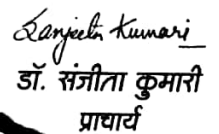 Sanjeeta Kumari
डॉ. संजीता कुमारी
प्राचार्य